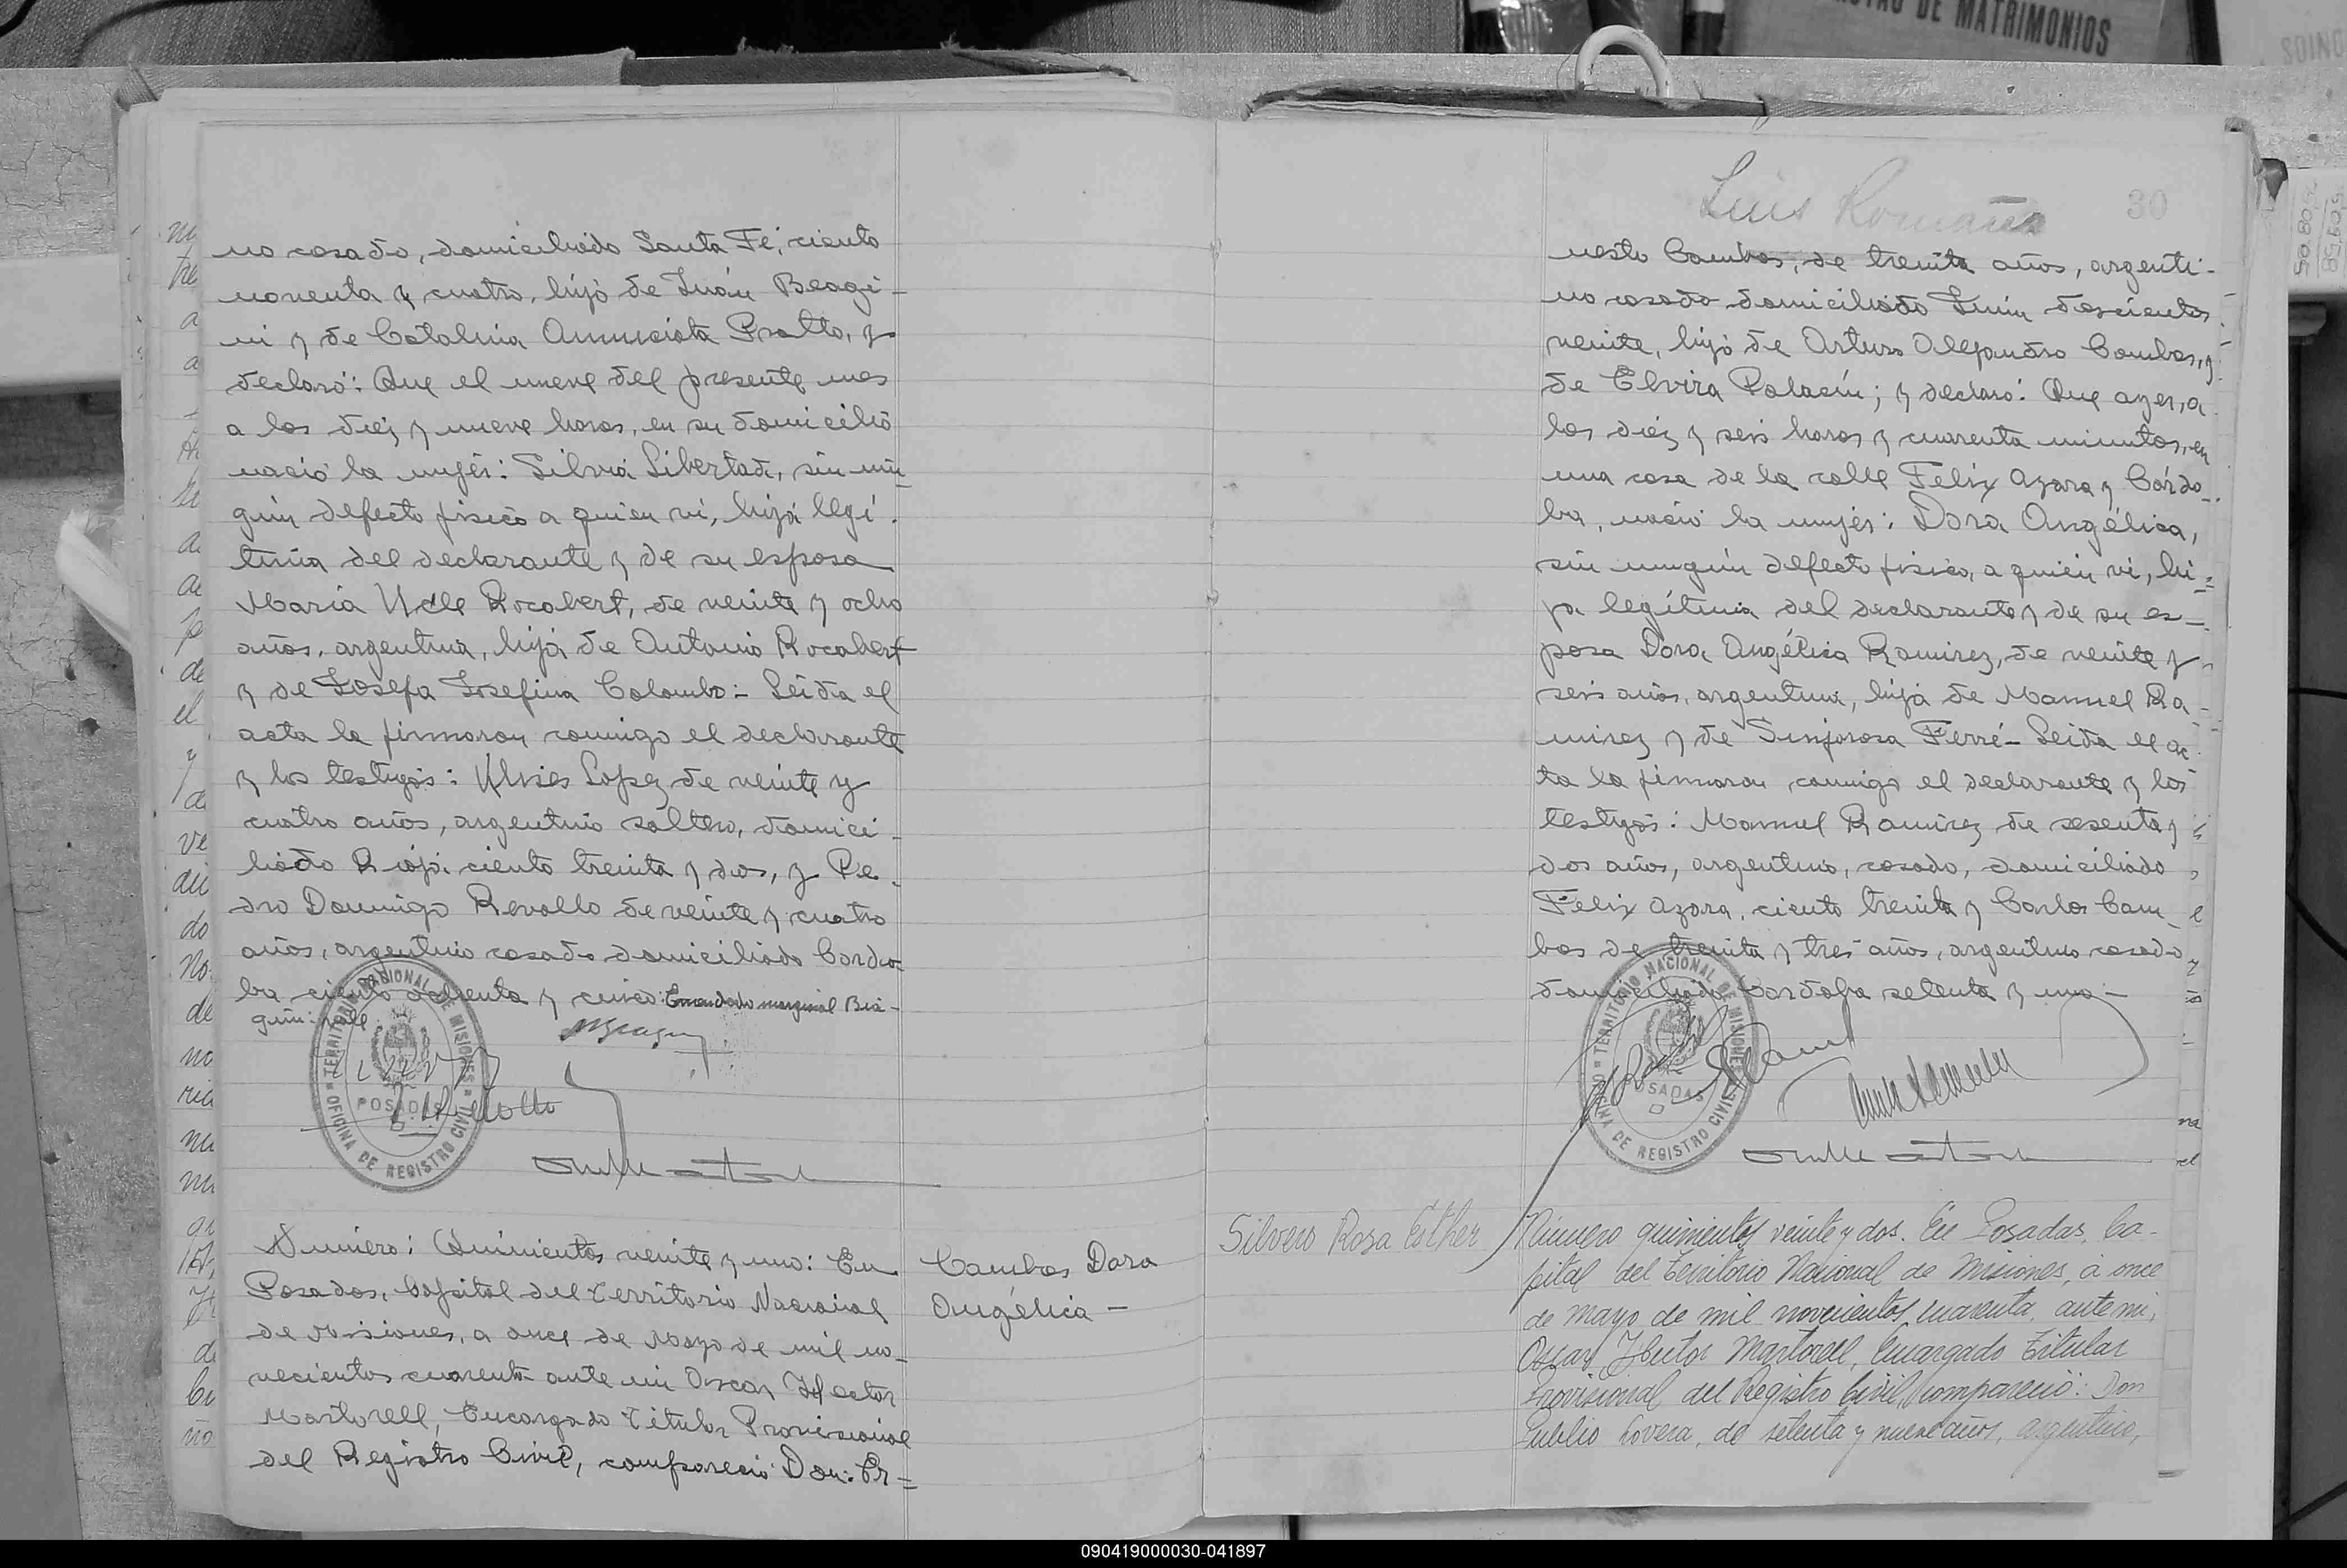 no casado, domiciliado Santa Fé, ciento
noventa y cuatro, hijo de Juán Beagi-
ni y de Catalina Anunciata Pratto, y
declaró: Que el nueve del presente mes
a las diez y nueve horas, en su domicilio
nació la mujér: Silvia Libertad, sin nin-
gún defecto fisico a quien vi, hija legí-
tima del declarante y de su esposa
María Rocabert, de veinte y ocho
años, argentina, hija de Antonio Rocabert
y de Josefa Josefina Colombo:- Leida el
acta la firmaron conmigo el declarante
y los testigos: Ulises Lopez de veinte y
cuatro años, argentino soltero, domici-
liado Rioja ciento treinta y dos, y Pe-
dro Domingo Revollo de veinte y cuatro
años, argentino casado domiciliado Cordo-
ba ciento ochenta y cinco: Enmendado marginal Bia-
gini: vale
TERRITORIO NACIONAL DE MISIONES
POSADAS
OFICINA DE REGISTRO CIVIL
Número: Quinientos veinte y uno: En
Posadas, Capital del Territorio Nacional
de Misiones, a once de Mayo de mil no-
vecientos cuarenta ante mi Oscar Hector
Martorell, Encargado Titular Provisional
del Registro Civil, compareció Don: Er-
Cambas Dora
Angélica -
Luis Romaña
30
nesto Cambas, de treinta años, argenti-
no casado domiciliado Junin doscientos
veinte, hijo de Arturo Alejandro Cambas, y
de Elvira Palacín; y declaró: Que ayer, a
las diez y seis horas y cuarenta minutos, en
una casa de la calle Felix Azara y Córdo-
ba, nació la mujér: Dora Angélica,
sin ningún defecto fisico, a quien vi, hi-
ja legítima del declarante y de su es-
posa Dora Angélica Ramirez, de veinte y
seis años, argentina, hija de Manuel Ra-
mirez y de Sinforosa Ferré- Leida el ac-
ta la firmaron conmigo el declarante y los
testigos: Manuel Ramirez de sesenta y
dos años, argentino, casado, domiciliado
Felix Azara, ciento treinta y Carlos Cam-
bas de treinta y tres años, argentino casado
domiciliado Cordoba setenta y uno-
TERRITORIO NACIONAL DE MISIONES
POSADAS
OFICINA DE REGISTRO CIVIL
Silvero Rosa Esther
Número quinientos veinte y dos. En Posadas, Ca-
pital del Territorio Nacional de Misiones, á once
de mayo de mil novecientos cuarenta, ante mi,
Oscar Hector Martorell, Encargado Titular
Provisional del Registro Civil, compareció: Don
Publio Lovera, de setenta y nueve años, argentino,
DE MATRIMONIOS
090419000030-041897